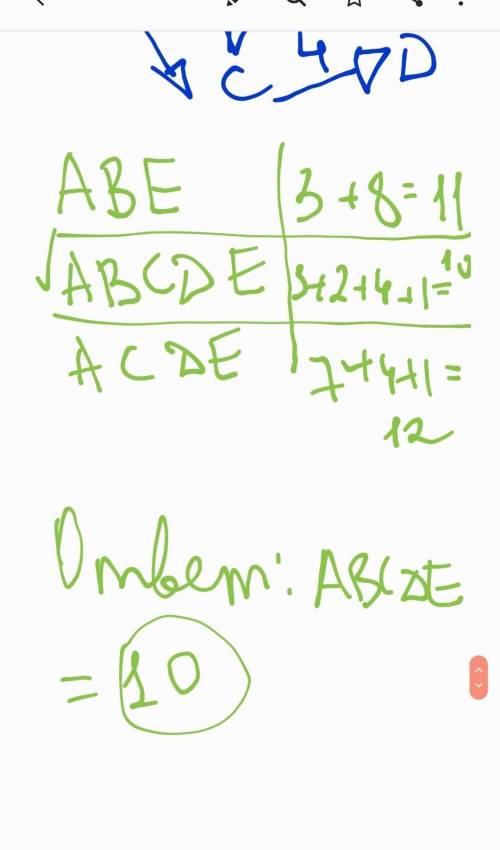 C 4 D
ABE 3+8=11
√ABCDE 3+2+4+1=10
ACDE 7+4+1=
12
Ответ: ABCDE
= 10